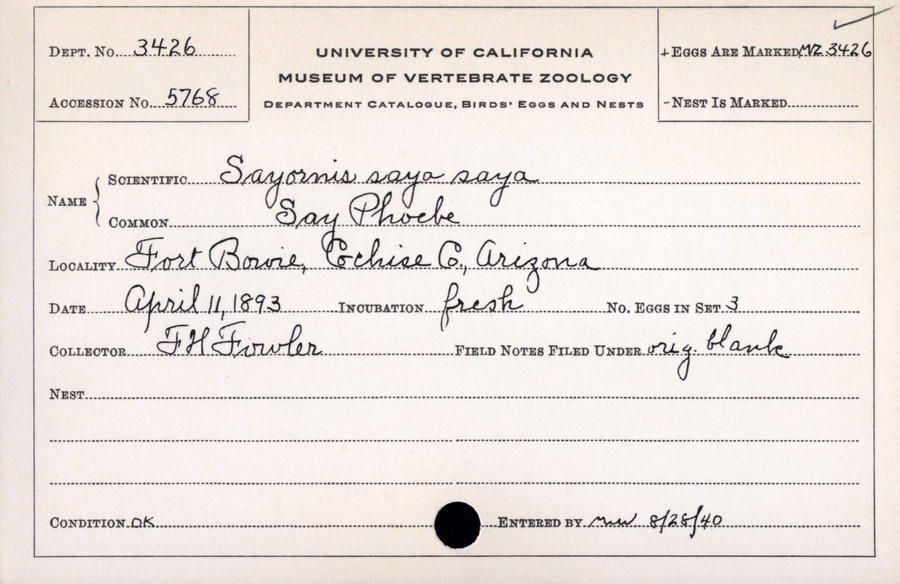 DEPT. No. 3426
ACCESSION No. 5768
UNIVERSITY OF CALIFORNIA
MUSEUM OF VERTEBRATE ZOOLOGY
DEPARTMENT CATALOGUE, BIRDS' EGGS AND NESTS
+EGGS ARE MARKED MVZ 3426
-NEST IS MARKED
NAME
SCIENTIFIC Sayornis saya saya
COMMON Say Phoebe
LOCALITY Fort Bowie, Cochise Co., Arizona
DATE April 11, 1893 INCUBATION fresh No. EGGS IN SET 3
COLLECTOR F H Fowler FIELD NOTES FILED UNDER orig. blank
NEST
CONDITION OK ENTERED BY 8/28/40